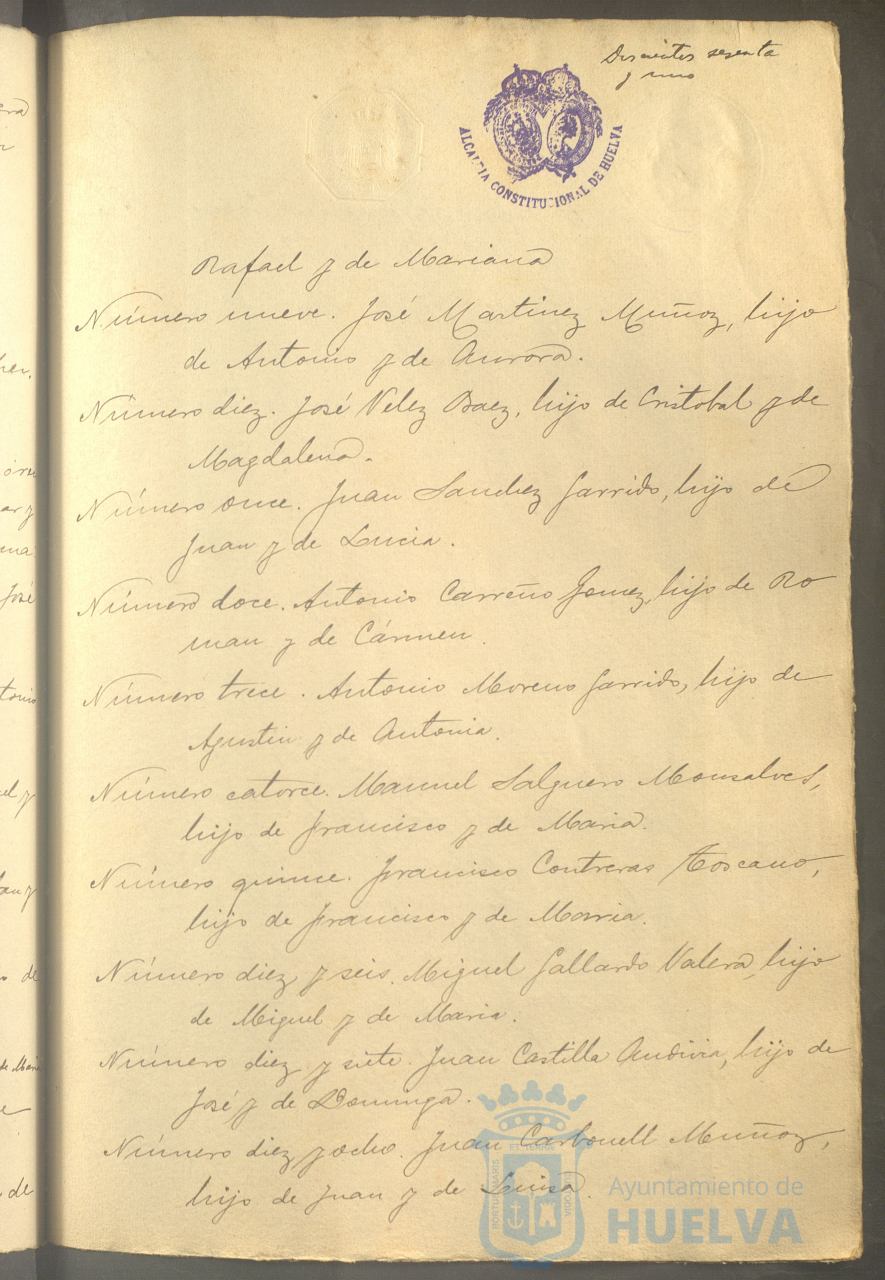 Doscientos sesenta
y uno
ALCALDIA CONSTITUCIONAL DE HUELVA
Rafael y de Mariana
Número nueve. José Martinez Muñoz, hijo
de Antonio y de Aurora.
Número diez. José Velez Baez, hijo de Cristobal y de
Magdalena.
Número once. Juan Sanchez Garrido, hijo de
Juan y de Lucia.
Número doce. Antonio Carreño Gomez, hijo de Ro
man y de Cármen.
Número trece. Antonio Moreno Garrido, hijo de
Agustin y de Antonia.
Número catorce. Manuel Salguero Monsalves,
hijo de Francisco y de Maria.
Número quince. Francisco Contreras Toscano,
hijo de Francisco y de Maria.
Número diez y seis. Miguel Gallardo Valera, hijo
de Miguel y de Maria.
Número diez y siete. Juan Castilla Andivia, hijo de
José y de Dominga.
Número diez y ocho. Juan Carbonell Muñoz,
hijo de Juan y de Luisa.
Ayuntamiento de
HUELVA